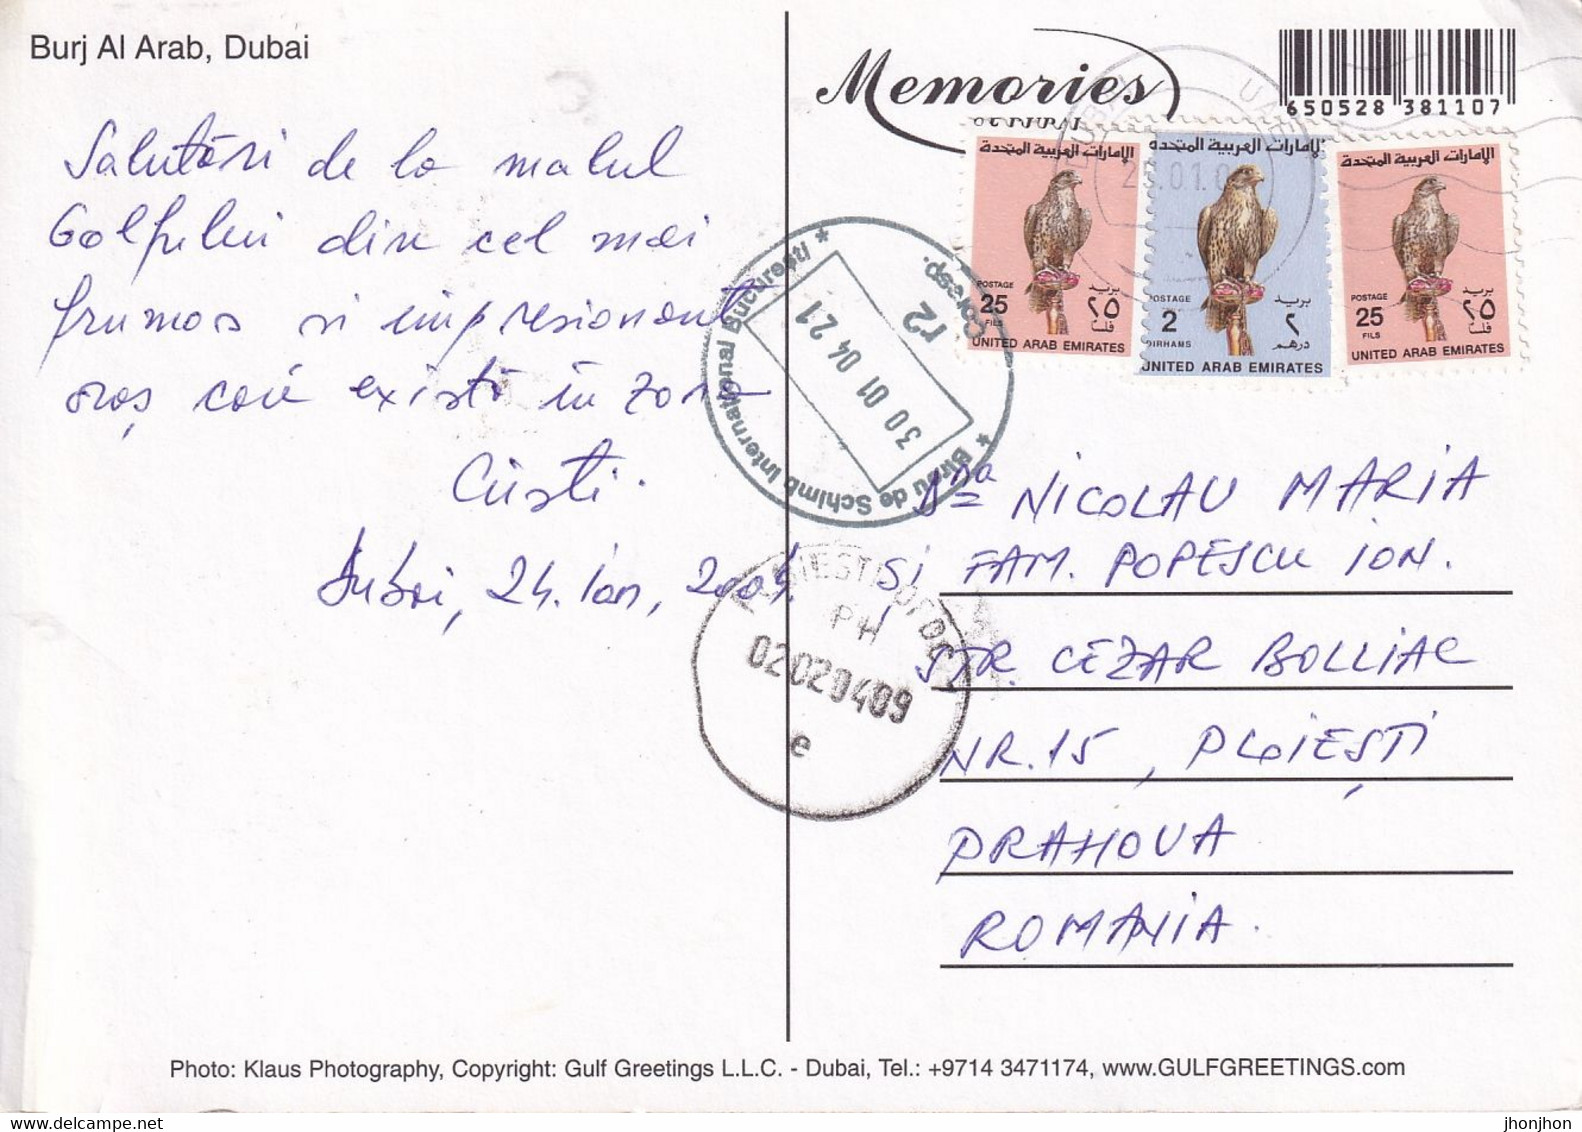 Burj Al Arab, Dubai
Salutări de la malul
Golfului din cel mai
frumos si impresionant
oraș care există în zonă
Cristi.
Dubai, 24. Ian, 2004.
Memories
650528 381107
UAE
الإمارات العربية المتحدة
POSTAGE
25
FILS
بريد
٢٥
فلس
UNITED ARAB EMIRATES
الإمارات العربية المتحدة
POSTAGE
2
DIRHAMS
بريد
٢
درهم
UNITED ARAB EMIRATES
الإمارات العربية المتحدة
POSTAGE
25
FILS
بريد
٢٥
فلس
UNITED ARAB EMIRATES
* Birou de Schimb Internaţional Bucureşti *
30 01 04 21
r2
Coresp.
PH
02020409
e
Dna NICOLAU MARIA
ȘI FAM. POPESCU ION.
STR. CEZAR BOLLIAC
NR. 15, PLOIEȘTI
PRAHOVA
ROMANIA.
Photo: Klaus Photography, Copyright: Gulf Greetings L.L.C. - Dubai, Tel.: +9714 3471174, www.GULFGREETINGS.com
www.delcampe.net
jhonjhon